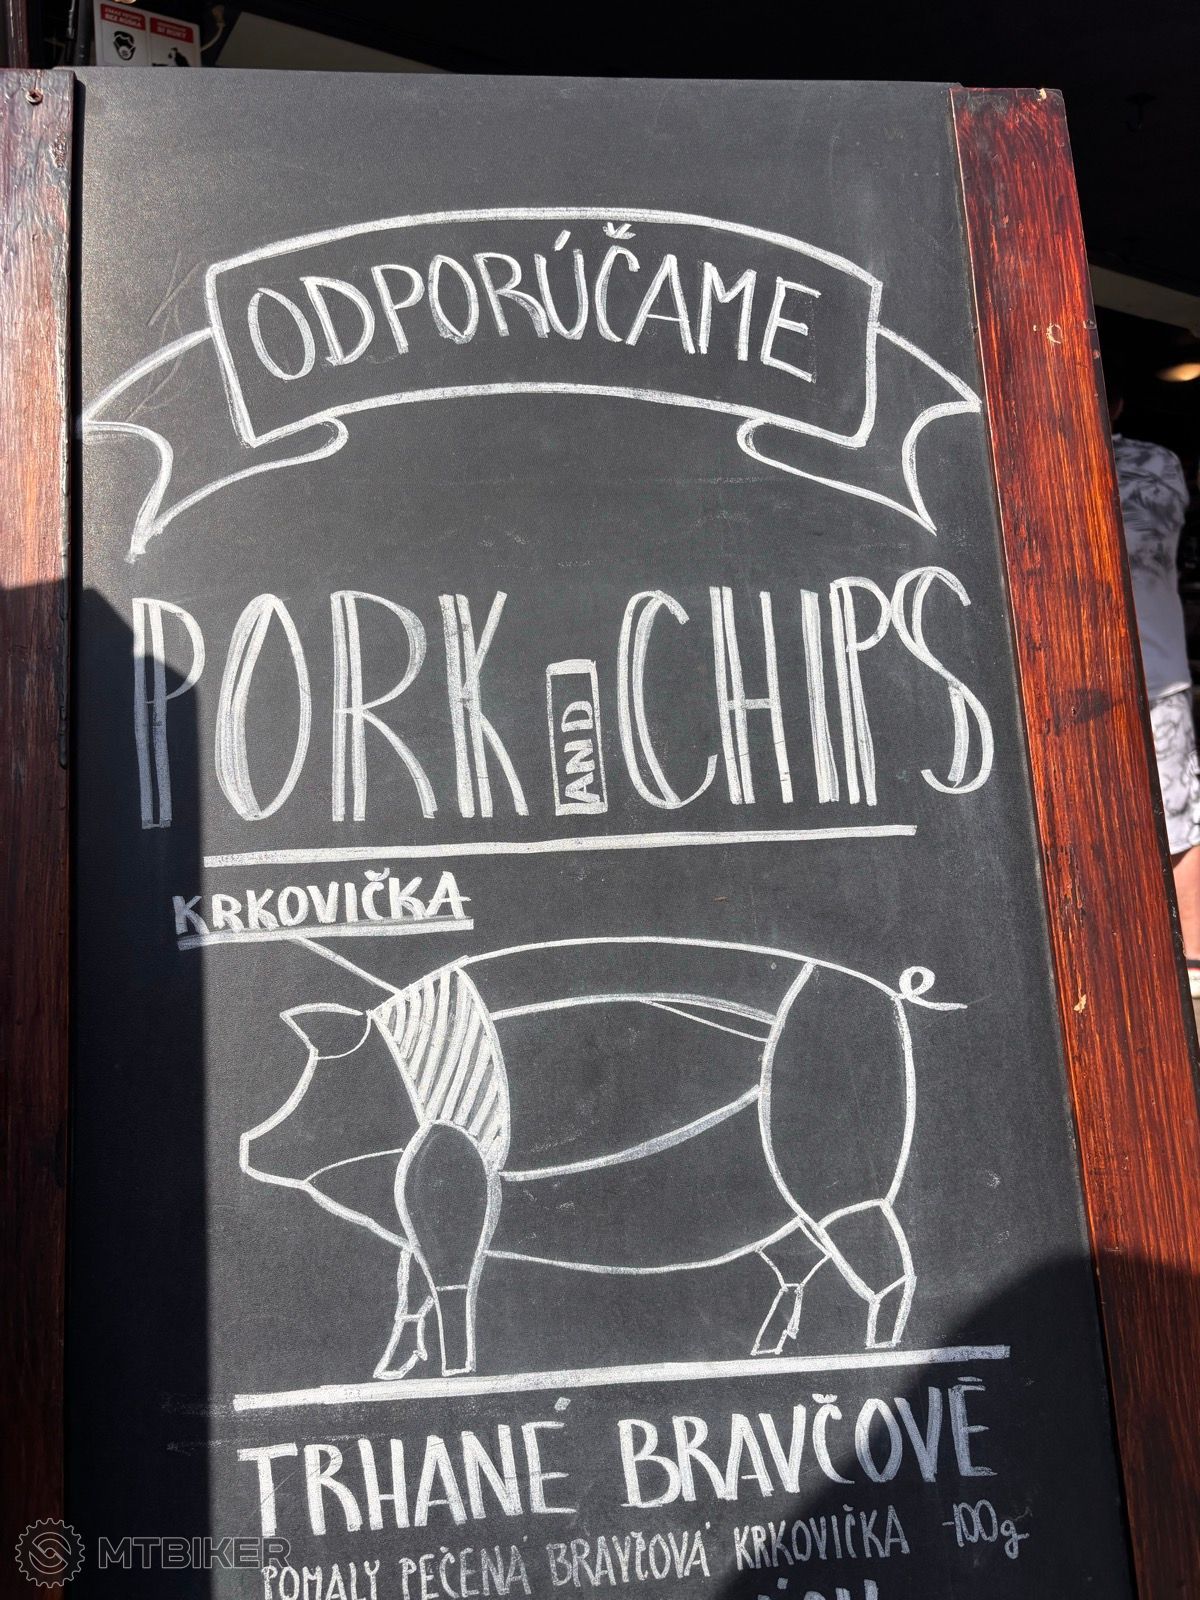 ODPORÚČAME
PORK AND CHIPS
KRKOVIČKA
TRHANÉ BRAVČOVÉ
POMALY PEČENÁ BRAVČOVÁ KRKOVIČKA -100g
MTBIKER